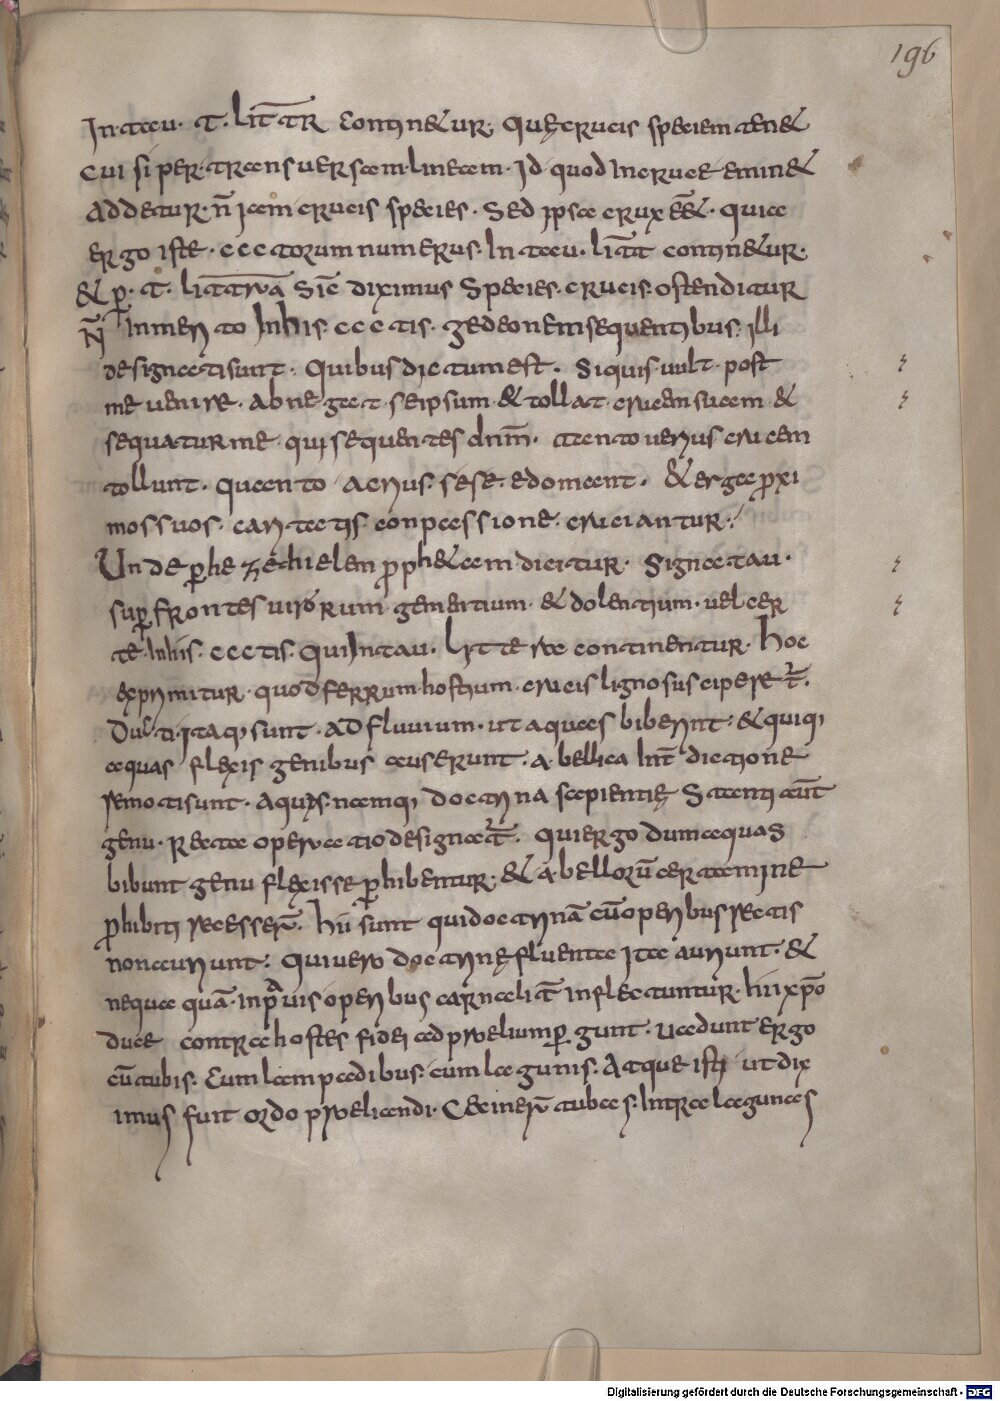 196
In tau · T · litTR continetur, Quę crucis speciem tenet
cui si per transversam lineam · Id quod in cruce eminet
adderetur · n̄ iam crucis species · Sed ipsa crux eēt · quia
ergo iste · ccctorum numerus · In tau · litt̄ continetur ·
& p̄ · T · litt̄rā Sic diximus Species · crucis · ostenditur
n̄ inmerito In his · ccctis · gedeonem sequentibus · illi
designati sunt · Quibus dictum est · Siquis vult · post
me venire · abneget · seipsum · & tollat · crucem suam · &
sequatur me · qui sequentes dnm̄ · Tanto verius crucem
tollunt · Quanto acrius · sese · edomant · & erga p̄xi
mos suos · caritatis · conpassione · cruciantur ·
Unde p̄ hezechielem p̄ph&am dicitur · Signa tau ·
sup̄ frontes virorum · gementium · & dolentium · vel cer
te · In his · ccctis · Qui In tau · littera continentur · hoc
exprimitur · quod ferrum hostium · crucis ligno susciperet̄ ·
Ducti itaq; sunt · ad fluvium · ut aquas biberent · & quiq;
aquas flexis genibus auserunt · a bellica Int̄dictione
remoti sunt · aquis · namq; doctrina sapientię Stanti aut̄
genu · Recta operatio designat̄ · Qui ergo dum aquas
bibunt genu flexisse p̄hibentur · & a bellorū certamine
p̄hibiti recesser̄ · hii sunt qui doctrinā cū operibus rectis
non auriunt · Qui vero doctrinę fluenta ita auriunt · &
nequa quā · In p̄avis operibus carnalit̄ inflectuntur · hii xp̄o
duce contra hostes fidei ad prelium p̄gunt · vadunt ergo
cū tubis · Cum lampadibus · cum lagunis · Atque isti ut dix
imus fuit ordo preliandi · Cecinerū tubas · Intra lagunas
Digitalisierung gefördert durch die Deutsche Forschungsgemeinschaft - DFG